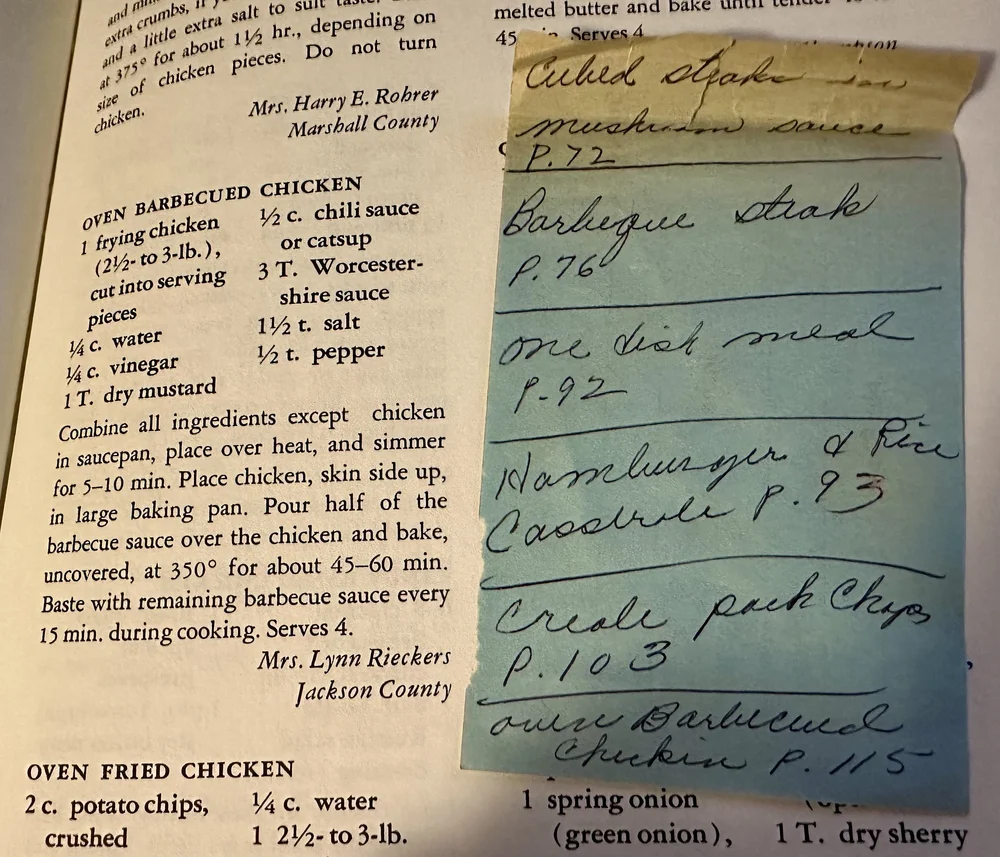 and
extra crumbs, if
and a little extra salt to suit taste.
at 375° for about 1½ hr., depending on
size of chicken pieces. Do not turn
chicken.
Mrs. Harry E. Rohrer
Marshall County
OVEN BARBECUED CHICKEN
1 frying chicken
(2½- to 3-lb.),
cut into serving
pieces
¼ c. water
¼ c. vinegar
1 T. dry mustard
½ c. chili sauce
or catsup
3 T. Worcester-
shire sauce
1½ t. salt
½ t. pepper
Combine all ingredients except chicken
in saucepan, place over heat, and simmer
for 5–10 min. Place chicken, skin side up,
in large baking pan. Pour half of the
barbecue sauce over the chicken and bake,
uncovered, at 350° for about 45–60 min.
Baste with remaining barbecue sauce every
15 min. during cooking. Serves 4.
Mrs. Lynn Rieckers
Jackson County
OVEN FRIED CHICKEN
2 c. potato chips,
crushed
¼ c. water
1 2½- to 3-lb.
melted butter and bake until tender
45 Serves 4
Cubed steaks in
mushroom sauce
P. 72
Barbeque steak
P. 76
one dish meal
P. 92
Hamburger & Rice
Casserole P. 93
Creole pork Chops
P. 103
oven Barbecued
Chicken P. 115
1 spring onion
(green onion),
1 T. dry sherry